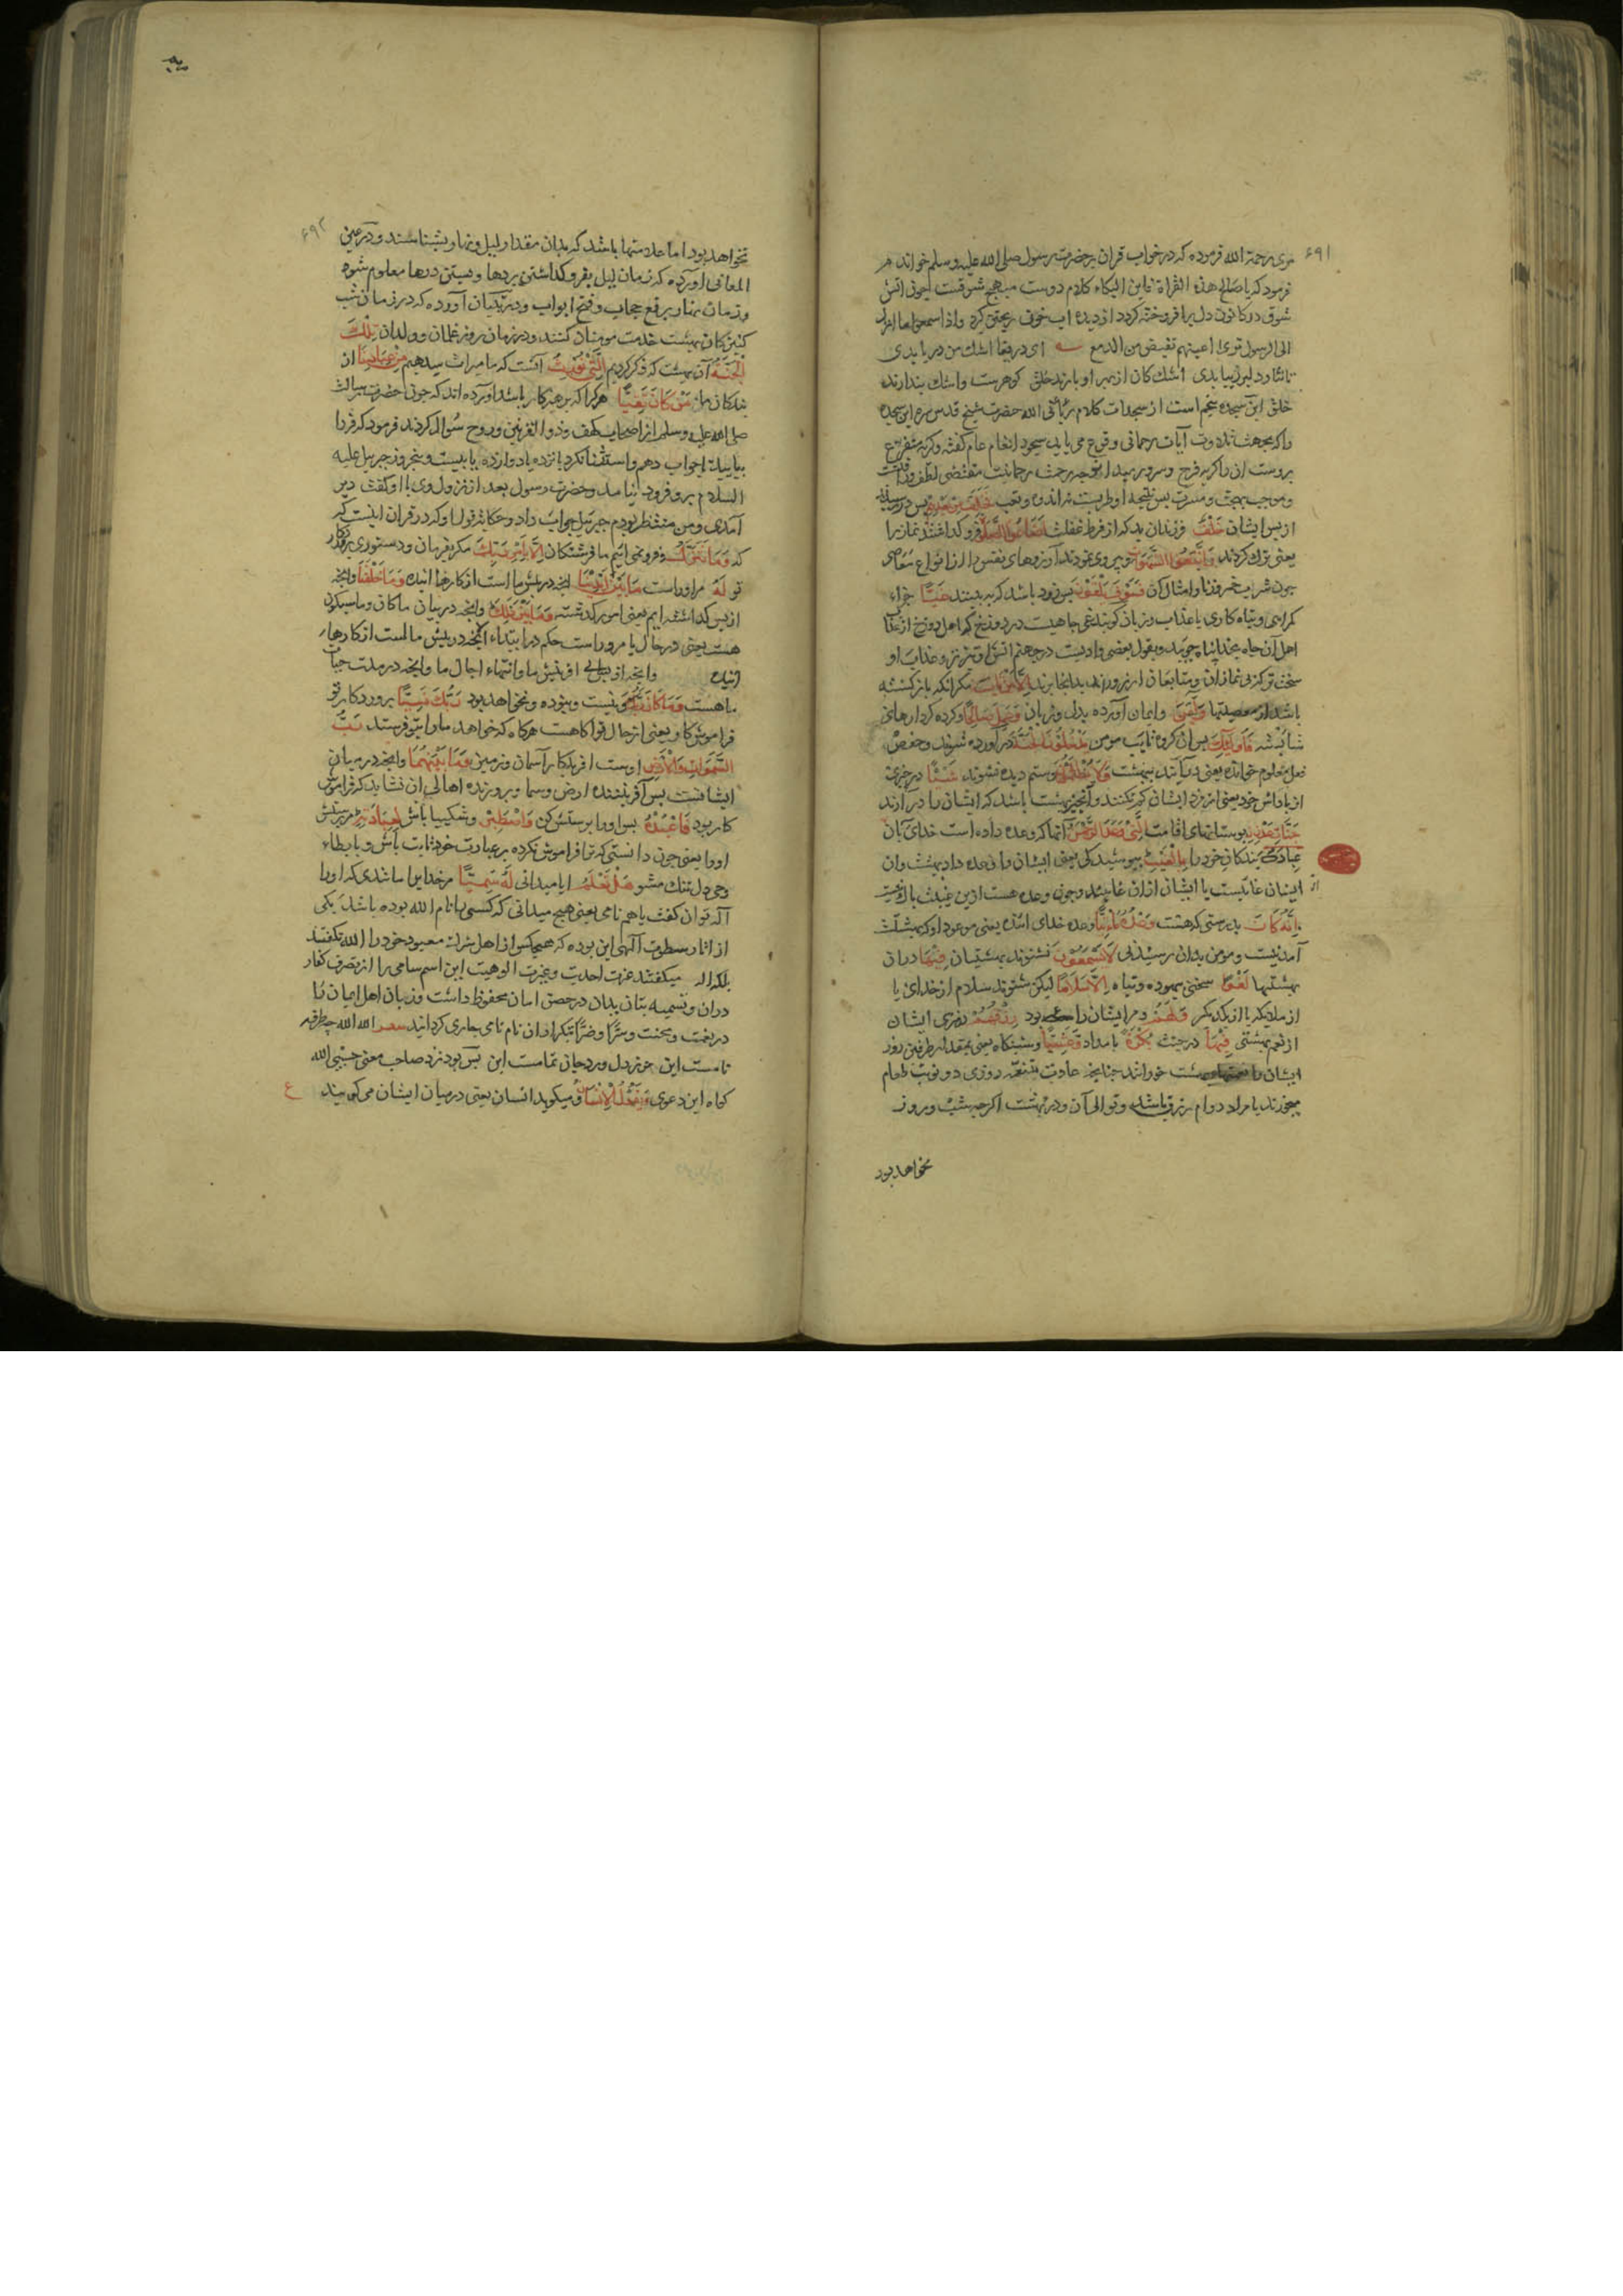 ۶۹۱
مری رحمة الله فرموده که در خواب قران بر حضرت رسول صلی الله علیه وسلم خواندم
فرمود که یا صالح هذه القراة فاین البکاء کلام دوست مهیج شوقست چون اتش
شوق در کانون دل برافروخته کردد از دیده اب خون ریختن کیرد واذا سمعوا ما انزل
الی الرسول تری اعینهم تفیض من الدمع ای دریغا اشک من دریا بدی
تا نثار دلبر زیبا بدی اشک کان از بهر او بارند خلق کوهرست واشک پندارند
خلق این سجده پنجم است از سجدات کلام ربانی الله حضرت شیخ قدس سره این سجده
را که بجهت تلاوت آیات رحمانی وقوع می یابد سجود انعام عام کفته وکریه متفرع
بروست ان را کریه فرح وسرور میداند چه رحمت رحمانیت مقتضی لطف ورافت
وموجب بهجت ومسرت پس نتیجه او طربست نه اندوه وتعب فَخَلَفَ مِنْ بَعْدِهِمْ پس در رسید
از پس ایشان خَلْفٌ فرزندان بد که از فرط غفلت اَضَاعُوا الصَّلٰوةَ فرو کداشتند نماز را
یعنی ترک کردند وَاتَّبَعُوا الشَّهَوَاتِ وپیروی نمودند آرزوهای نفس را از انواع معاصی
چون شرب خمر وزنا وامثال آن فَسَوْفَ يَلْقَوْنَ پس زود باشد که ببینند غَيًّا جزاء
کمراهی وتباه کاری یا عذاب وزیان کویند غی چاهیست در دوزخ که اهل دوزخ از عذاب
اهل آن چاه بخدا پناه جویند وبقول بعضی وادیست در جهنم اتش او تیزتر وعذاب او
سخت تر که بی نمازان ومتابعان ارزو را بدانجا برند اِلَّا مَنْ تَابَ مکر انکه باز کشته
باشد از معصیتها وَاٰمَنَ وایمان آورده بدل وزبان وَعَمِلَ صَالِحًا وکرده کردارهای
شایسته فَاُولٰئِكَ پس ان کروه تایب مومن يَدْخُلُونَ الْجَنَّةَ در آورده شوند وحفص
فعل معلوم خوانده یعنی درآیند ببهشت وَلَا يُظْلَمُونَ وستم دیده نشوند شَيْئًا در چیزی
از پاداش خود یعنی از مزد ایشان کم نکنند وآنچیز بهشت باشد که ایشان را درآرند
جَنَّاتِ عَدْنٍ ببوستانهای اقامت الَّتِي وَعَدَ الرَّحْمٰنُ آنها که وعده داده است خدای آبان
عِبَادَهُ بندکان خود را بِالْغَيْبِ بپوشیدکی یعنی ایشان را وعده داد بهشت وان
ایشان غایبست یا ایشان ازان غایبند وچون وعده هست ازین غیبت باک نیست
اِنَّهُ كَانَ بدرستی که هست وَعْدُهُ مَأْتِيًّا وعده خدای اینده یعنی موعود او که بهشتست
آمدنیست ومومن بدان رسیدنی لَا يَسْمَعُونَ نشنوند بهشتیان فِيهَا دران
بهشتها لَغْوًا سخنی بیهوده وتباه اِلَّا سَلَامًا لیکن شنوند سلام از خدای یا
از ملایکه یا از یکدیکر وَلَهُمْ ومر ایشان را بود رِزْقُهُمْ روزی ایشان
از نعم بهشتی فِيهَا در جنت بُكْرَةً بامداد وَعَشِيًّا وشبنکاه یعنی بمقدار طرفین روز
ایشان را نعمتهاء بهشت خورانند چنانچه عادت متنعمه روزی دو نوبت طعام
میخورند یا مراد دوام رزق باشد وتوالی آن ودر بهشت اکرچه شب وروز
نخواهد بود
۶۹۲
نخواهد بود اما علامتها باشد که بدان مقدار لیل ونهار بشناسند ودر عین
المعانی اورده که زمان لیل بفرو کداشتن پردها وبستن درها معلوم شود
وزمان نهار برفع حجاب وفتح ابواب ودر تبیان آورده که در زمان شب
کنیزکان بهشت خدمت مومنان کنند ودر زمان روز غلمان وولدان تِلْكَ
الْجَنَّةُ آن بهشت که ذکر کردیم الَّتِي نُورِثُ آنست که ما میراث میدهیم مِنْ عِبَادِنَا از
بندکان ما مَنْ كَانَ تَقِيًّا هر کرا که پرهیزکار باشد اورده اند که چون حضرت رسالت
صلی الله علیه وسلم از اصحاب کهف وذوالقرنین وروح سوال کردند فرمود که فردا
بیایید تا جواب دهم واستثنا نکرد پانزده یا دوازده یا بیست وپنجروز جبرییل علیه
السلام برو فرود نیامد وحضرت رسول بعد از نزول وی با او کفت دیر
آمدی ومن منتظر بودم جبرییل جواب داد وحکایت قول او که در قران اینست که
که وَمَا نَتَنَزَّلُ وفرو نمی ائیم ما فرشتکان اِلَّا بِاَمْرِ رَبِّكَ مکر بفرمان ودستوری پروردکار
تو لَهُ مر اوراست مَا بَيْنَ اَيْدِينَا انچه در پیش ماست از کارها اینده وَمَا خَلْفَنَا وانچه
از پس کداشته ایم یعنی امور کدشته وَمَا بَيْنَ ذٰلِكَ وانچه در میان ما کان وما سیکون
هست یعنی در حال یا مر اوراست حکم در ابتداء انچه در پیش ماست از کارهاء
اینده وانچه از پس افرینش ما وانتهاء اجال ما وانچه در مدت حیات
ما هست وَمَا كَانَ رَبُّكَ ونیست ونبوده ونخواهد بود رَبُّكَ نَسِيًّا پروردکار تو
فراموشکار یعنی از حال تو اکاهست هرکاه که خواهد مارا بتو فرستد رَبُّ
السَّمٰوَاتِ وَالْاَرْضِ اوست افریدکار آسمان وزمین وَمَا بَيْنَهُمَا وانچه در میان
ایشانست پس آفریننده ارض وسما وپرورنده اهالی ان نشاید که فراموش
کار بود فَاعْبُدْهُ پس اورا پرستش کن وَاصْطَبِرْ وشکیبا باش لِعِبَادَتِهِ مر پرستش
اورا یعنی چون دانستی که ترا فراموش نکرده بر عبادت خود ثابت باش وبابطاء
وحی دل تنک مشو هَلْ تَعْلَمُ ایا میدانی لَهُ سَمِيًّا مر خدایرا مانندی که اورا
آله توان کفت یا هم نامی یعنی هیچ میدانی که کسی بنام الله بوده باشد یکی
از اثار سطوت آلهی این بوده که هیچکس از اهل شرک معبود خود را الله نکفتند
بلکه اله میکفتند عزت احدیت وغیرت الوهیت این اسم سامی را از تصرف کفار
دران وتسمیه بتان بدان در حصن امان محفوظ داشت وزبان اهل ایمان را
در نعمت ومحنت وسرا وضرا بتکرار ان نام نامی جاری کردانید الله الله چه طرفه
نامست این حرز دل ورد جان تمامست این بس بود نزد صاحب معنی حسبی الله
کواه این دعوی وَيَقُولُ الْاِنْسَانُ ومیکوید انسان یعنی در میان ایشان می کویند
ع